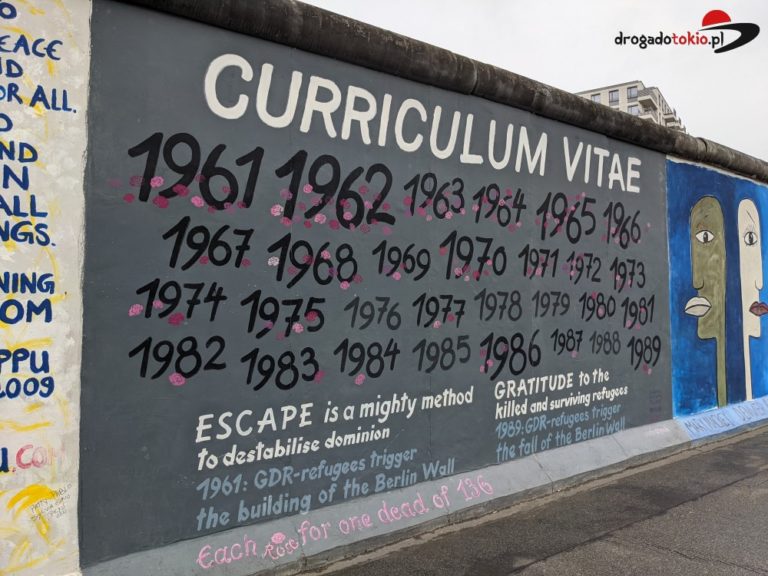 drogadotokio.pl
TO
PEACE
ND
FOR ALL.
D
ND
N
ALL
NGS.
NING
OM
PPU
2009
U.COM
CURRICULUM VITAE
1961 1962 1963 1964 1965 1966
1967 1968 1969 1970 1971 1972 1973
1974 1975 1976 1977 1978 1979 1980 1981
1982 1983 1984 1985 1986 1987 1988 1989
ESCAPE is a mighty method
to destabilise dominion
1961: GDR-refugees trigger
the building of the Berlin Wall
GRATITUDE to the
killed and surviving refugees
1989: GDR-refugees trigger
the fall of the Berlin Wall
Each Rose for one dead of 136